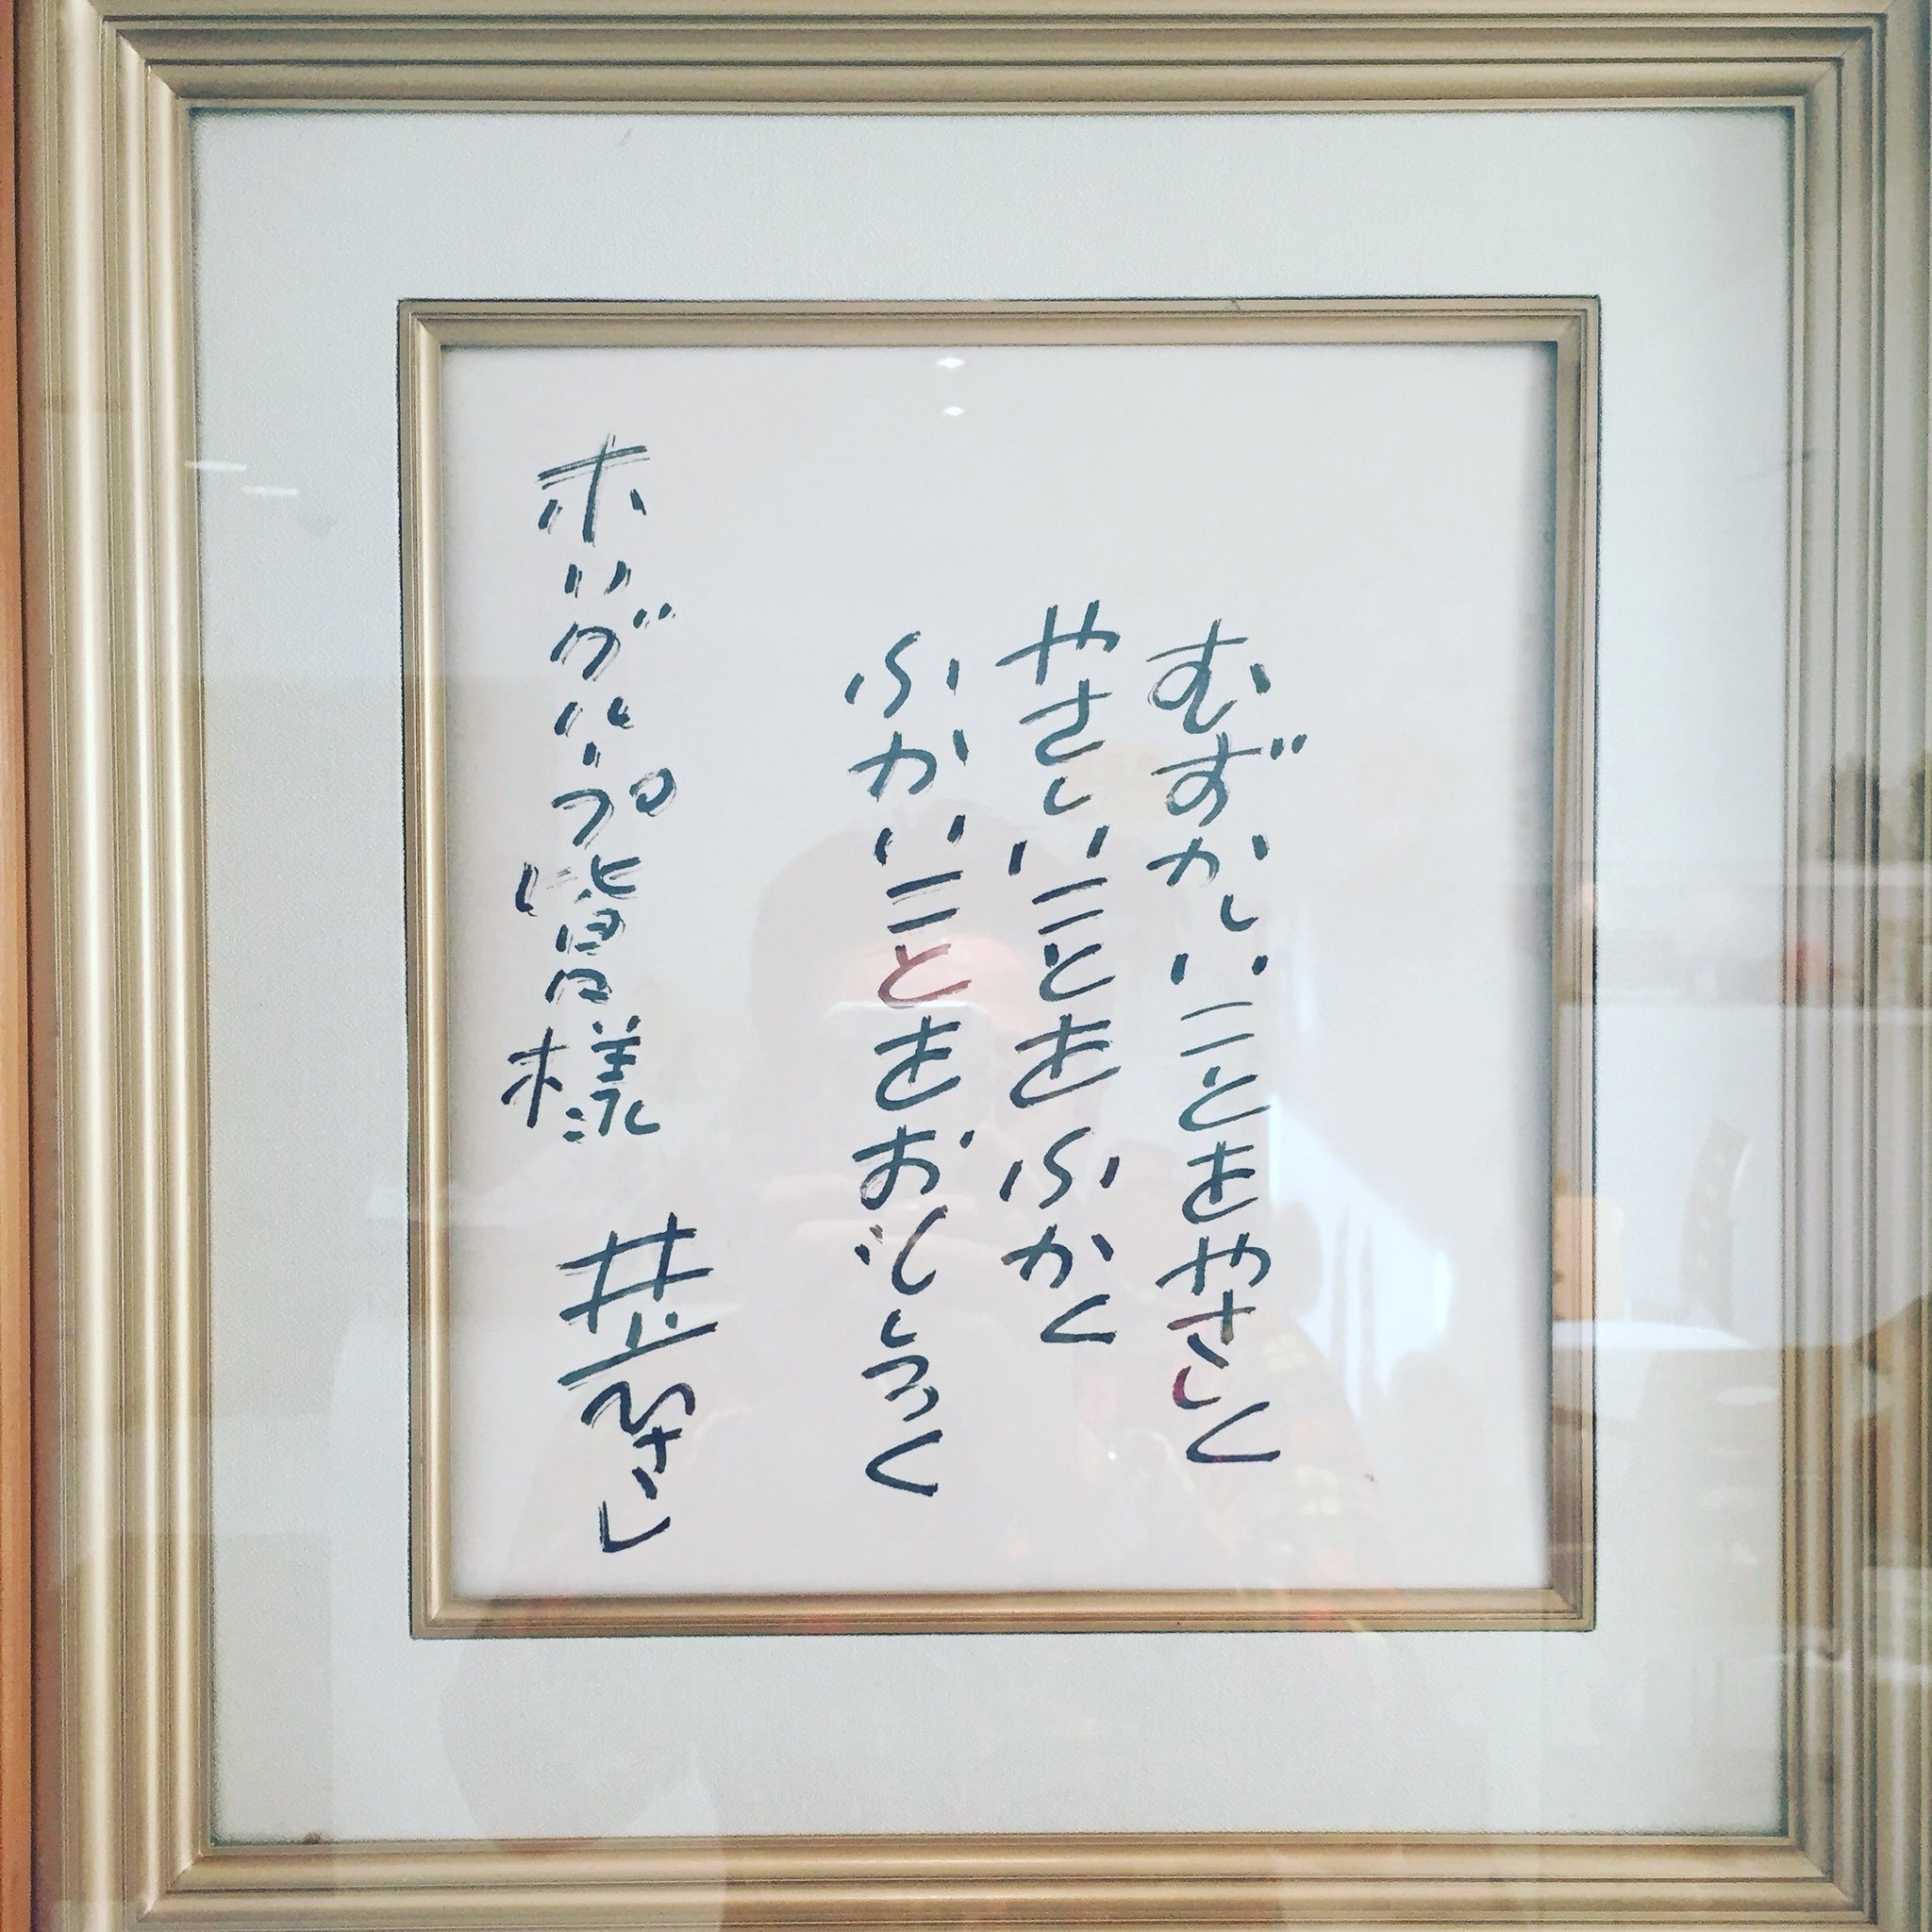 むずかしいことをやさしく
やさしいことをふかく
ふかいことをおもしろく
ホリグループ皆様
井上ひさし